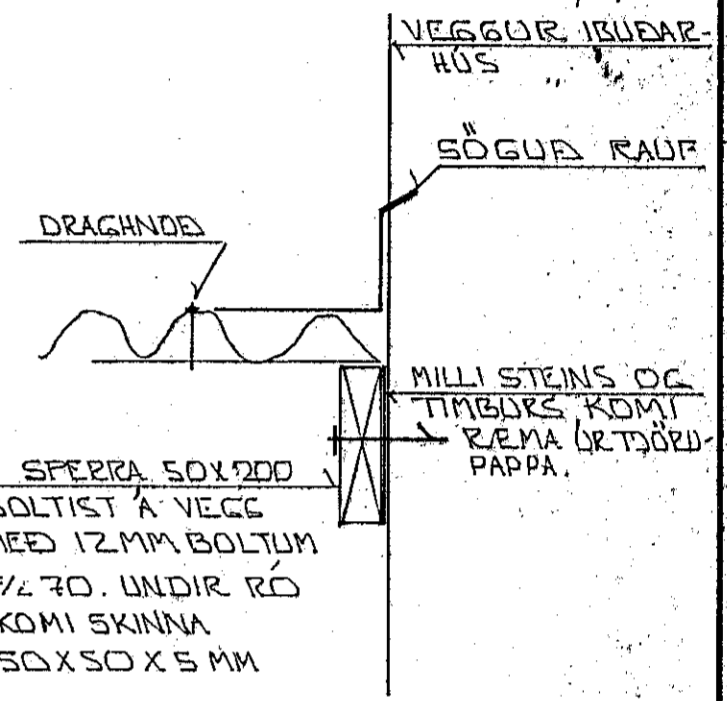 VEGGUR ÍBUÐAR-
HÚS
SÖGUÐ RAUF
DRAGHNOÐ
MILLI STEINS OG
TIMBURS KOMI
RÆMA ÚR TJÖRU-
PAPPA.
SPERRA 50X200
BOLTIST Á VEGG
MEÐ 12MM BOLTUM
70. UNDIR RÓ
KOMI SKINNA
50X50X5 MM